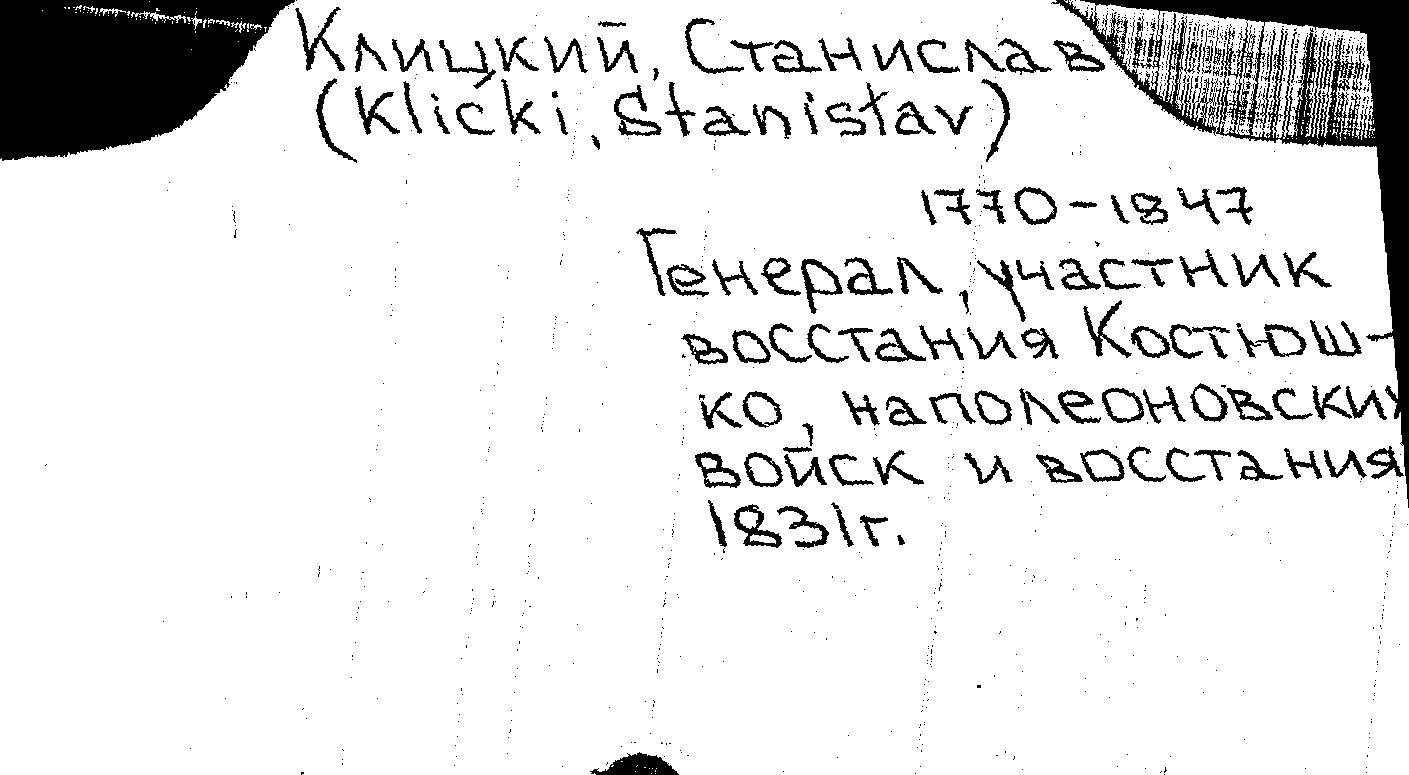 Клицкий, Станислав
(Klićki, Stanisłav)
1770-1847
Генерал, участник
восстания Костюш-
ко, наполеоновских
войск и восстания
1831г.